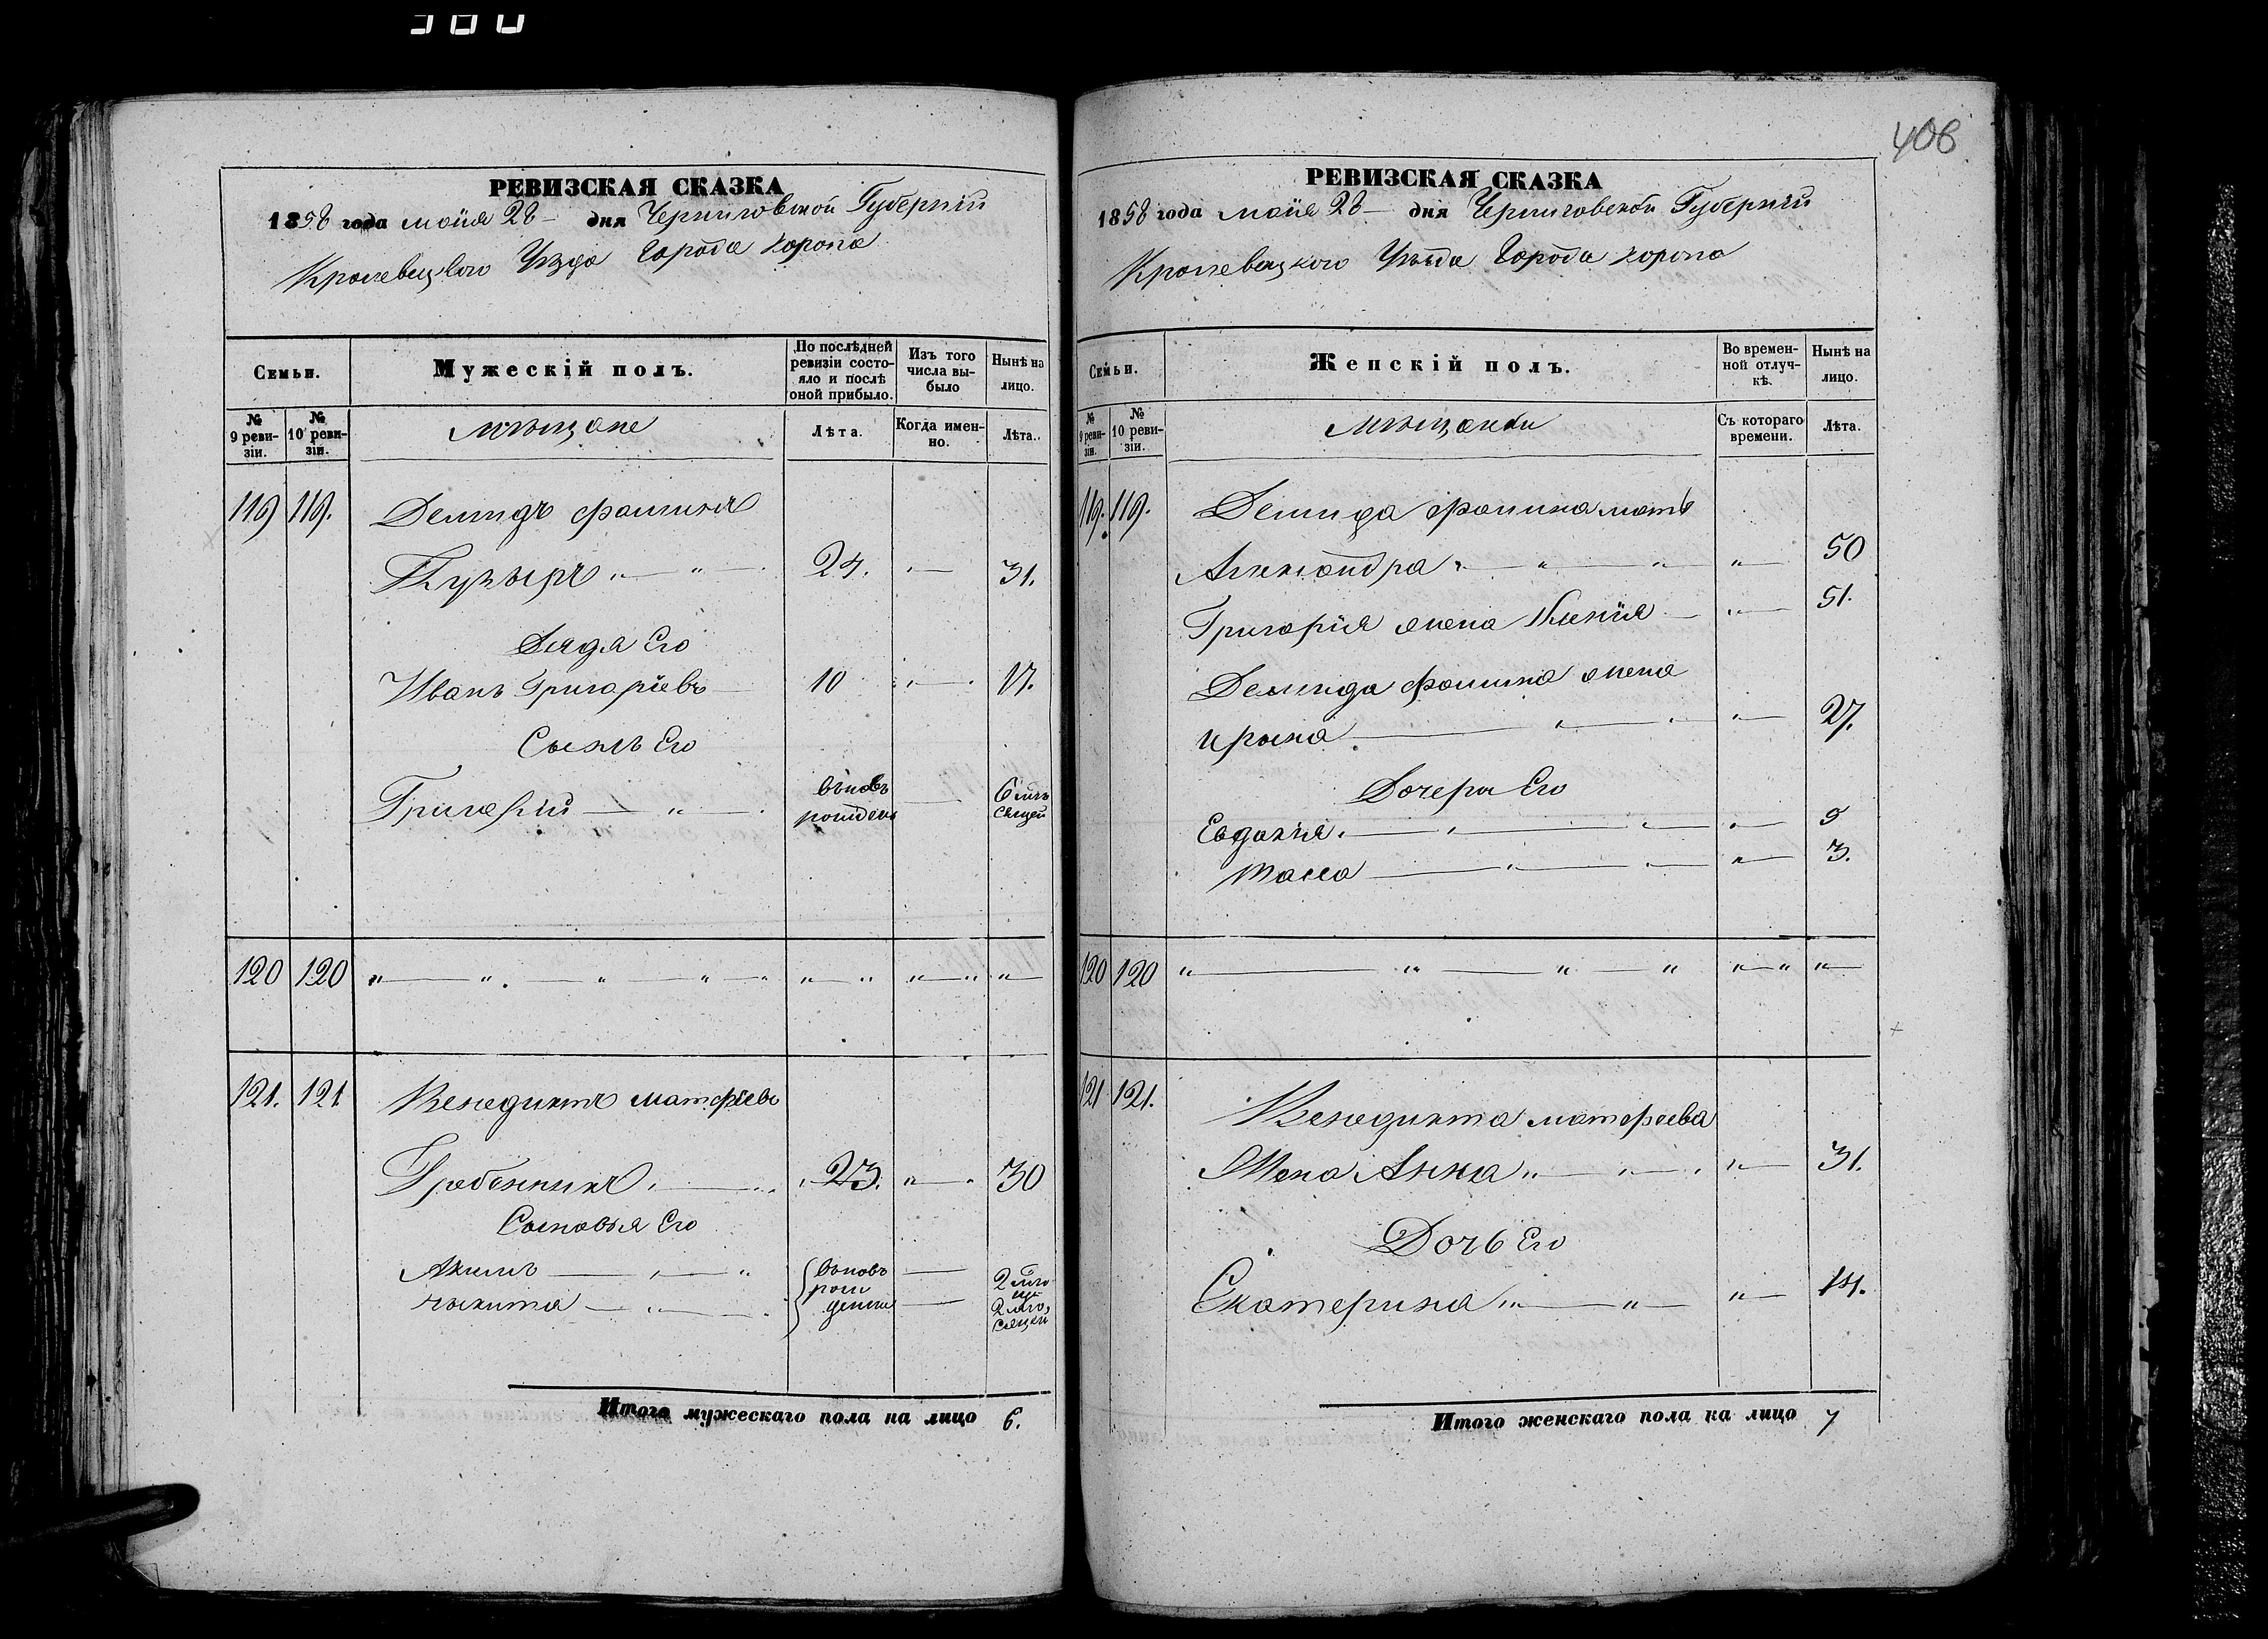 380
РЕВИЗСКАЯ СКАЗКА
1858 года маия 28 дня Черниговской Губерніи
Кролевецкого Уезда Города Коропа
Семьи.
Мужескій полъ.
По послѣдней ревизіи состояло и послѣ оной прибыло.
Изъ того числа выбыло
Нынѣ на лицо.
№ 9 ревизіи.
№ 10 ревизіи.
мѣщане
Лѣта.
Когда именно.
Лѣта.
119 119. Демидъ Фоминъ
24. 31.
Дядя Его
Иванъ Григоріевъ 10 17.
Сынъ Его
Григорій вновь рожденъ 6 месяцей
120 120
121. 121 Венедиктъ Матфеевъ
Гребенникъ 23. 30
Сыновья Его
Акимъ вновь рождени 2
Никита 2 месяцей
Итого мужескаго пола на лицо 6.
408
РЕВИЗСКАЯ СКАЗКА
1858 года маия 28 дня Черниговской Губерніи
Кролевецкого Уезда Города Коропа
Семьи.
Женскій полъ.
Во временной отлучкѣ.
Нынѣ на лицо.
№ 9 ревизіи.
№ 10 ревизіи.
мѣщанки
Съ котораго времени.
Лѣта.
119. 119. Демида Фомина мать
Александра 50
Григорія жена 51.
Демида Фомина жена
Ирина 27.
Дочери Его
Евдокія
3.
120 120
121 121. Венедикта Матфеева
Жена Анна 31.
Дочь Его
Екатерина 14.
Итого женскаго пола на лицо 7